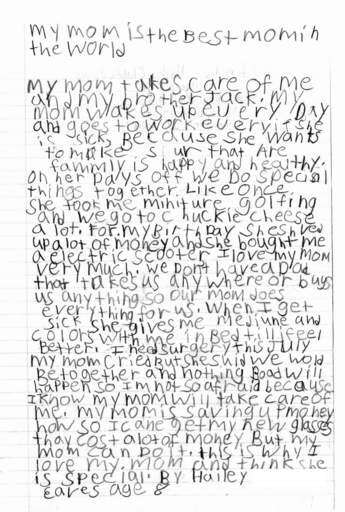 my mom is the Best mom in
the world
my mom takes care of me
and my brother Jack. my
mom wakes up every Day
and goes to work every if she
is sick Because she wants
to make sur that are
family is happy and healthy.
on her Days off we Do special
things together. Like once
she took me miniture golfing
and we go to chuckie cheese
a lot. For my BirthDay she
up alot of money and she bought me
a electric scooter I love my mom
very much. we Dont have a Dad
that takes us any where or buys
us anything so our mom does
everything for us. when I get
sick she gives me and
colors with me in Bed till I feel
Better. I need surgery this July
my mom cried But she said we
Be together and nothing Bad will
happen so Im not so afraid because
I know my mom will take care of
me. my mom is saving up money
now so I can get my new glasses
thay cost alot of money But my
mom can Do it. this is why I
love my mom and think she
is special. By Hailey
age 8